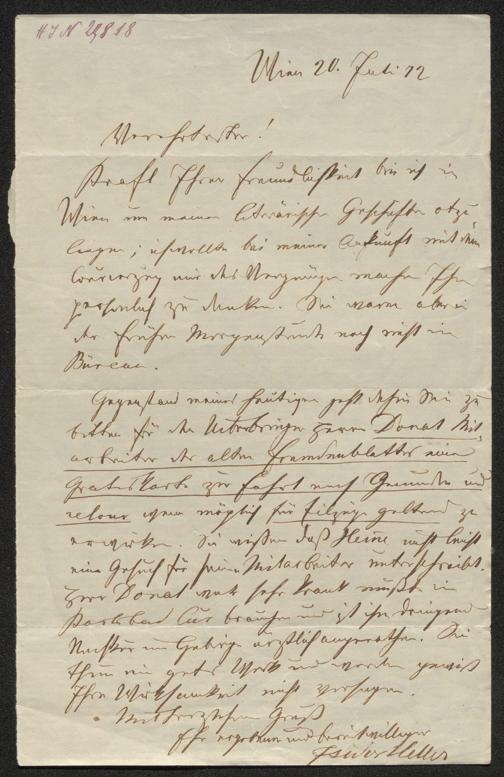 HIN 29818
Wien 20. Juli 72
Verehrtester!
Kraft Ihrer Freundlichkeit bin ich in
Wien um meinen literärischen Geschäften obzu
liegen; ich wollte bei meiner Ankunft mit dem
Courierzug mir das Vergnügen machen Ihnen
persönlich zu danken. Sie waren aber in
der frühen Morgenstunde noch nicht im
Büreau.
Gegenstand meines heutigen geht dahin Sie zu
bitten für den Ueberbringer Herrn Donat Mit-
arbeiter des alten Fremdenblattes eine
Gratiskarte zur Fahrt nach Gmunden und
retour wenn möglich für Eilzüge geltend zu
erwirken. Sie wissen daß Heine nicht leicht
ein Gesuch für seine Mitarbeiter unterschreibt.
Herr Donat war sehr krank mußte in
Karlsbad Cur brauchen und ist ihm dringend
Nachkur im Gebirge ärztlich angerathen. Sie
thun ein gutes Werk und werden gewiß
Ihre Wirksamkeit nicht versagen.
Mit herzlichem Gruß
Ihr ergebener und bereitwilliger
Isidor Heller